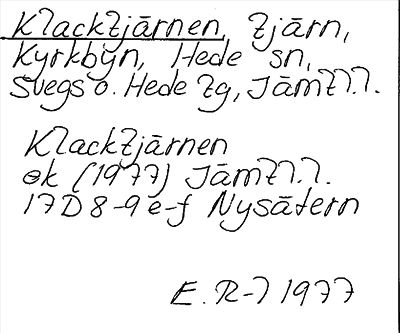 Klacktjärnen, tjärn,
Kyrkbyn, Hede sn,
Svegs o. Hede tg, Jämtl.l.
Klacktjärnen
ek (1977) Jämtl.l.
17D 8-9 e-f Nysätern
E. R-l 1977